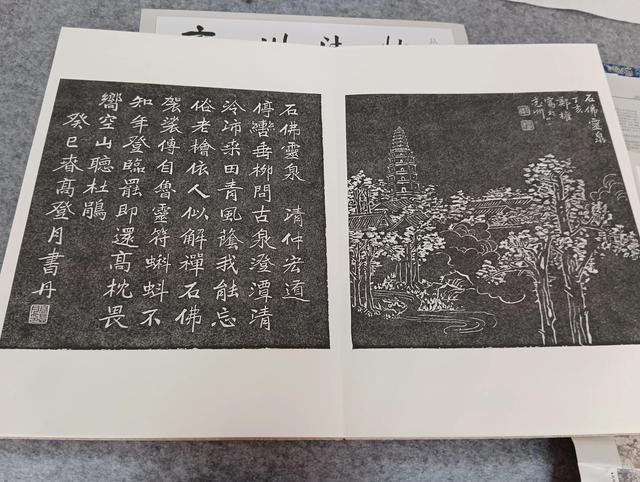 石佛靈泉
丁亥
石佛靈泉 清仲宏道
停轡垂柳問古泉澄潭清
泠沛来田青風蔭我能忘
俗老檜依人似解禪石佛
袈裟傳自魯靈符蝌蚪不
知年登臨罷即還高枕畏
嚮空山聽杜鵑
癸巳春高登月書丹